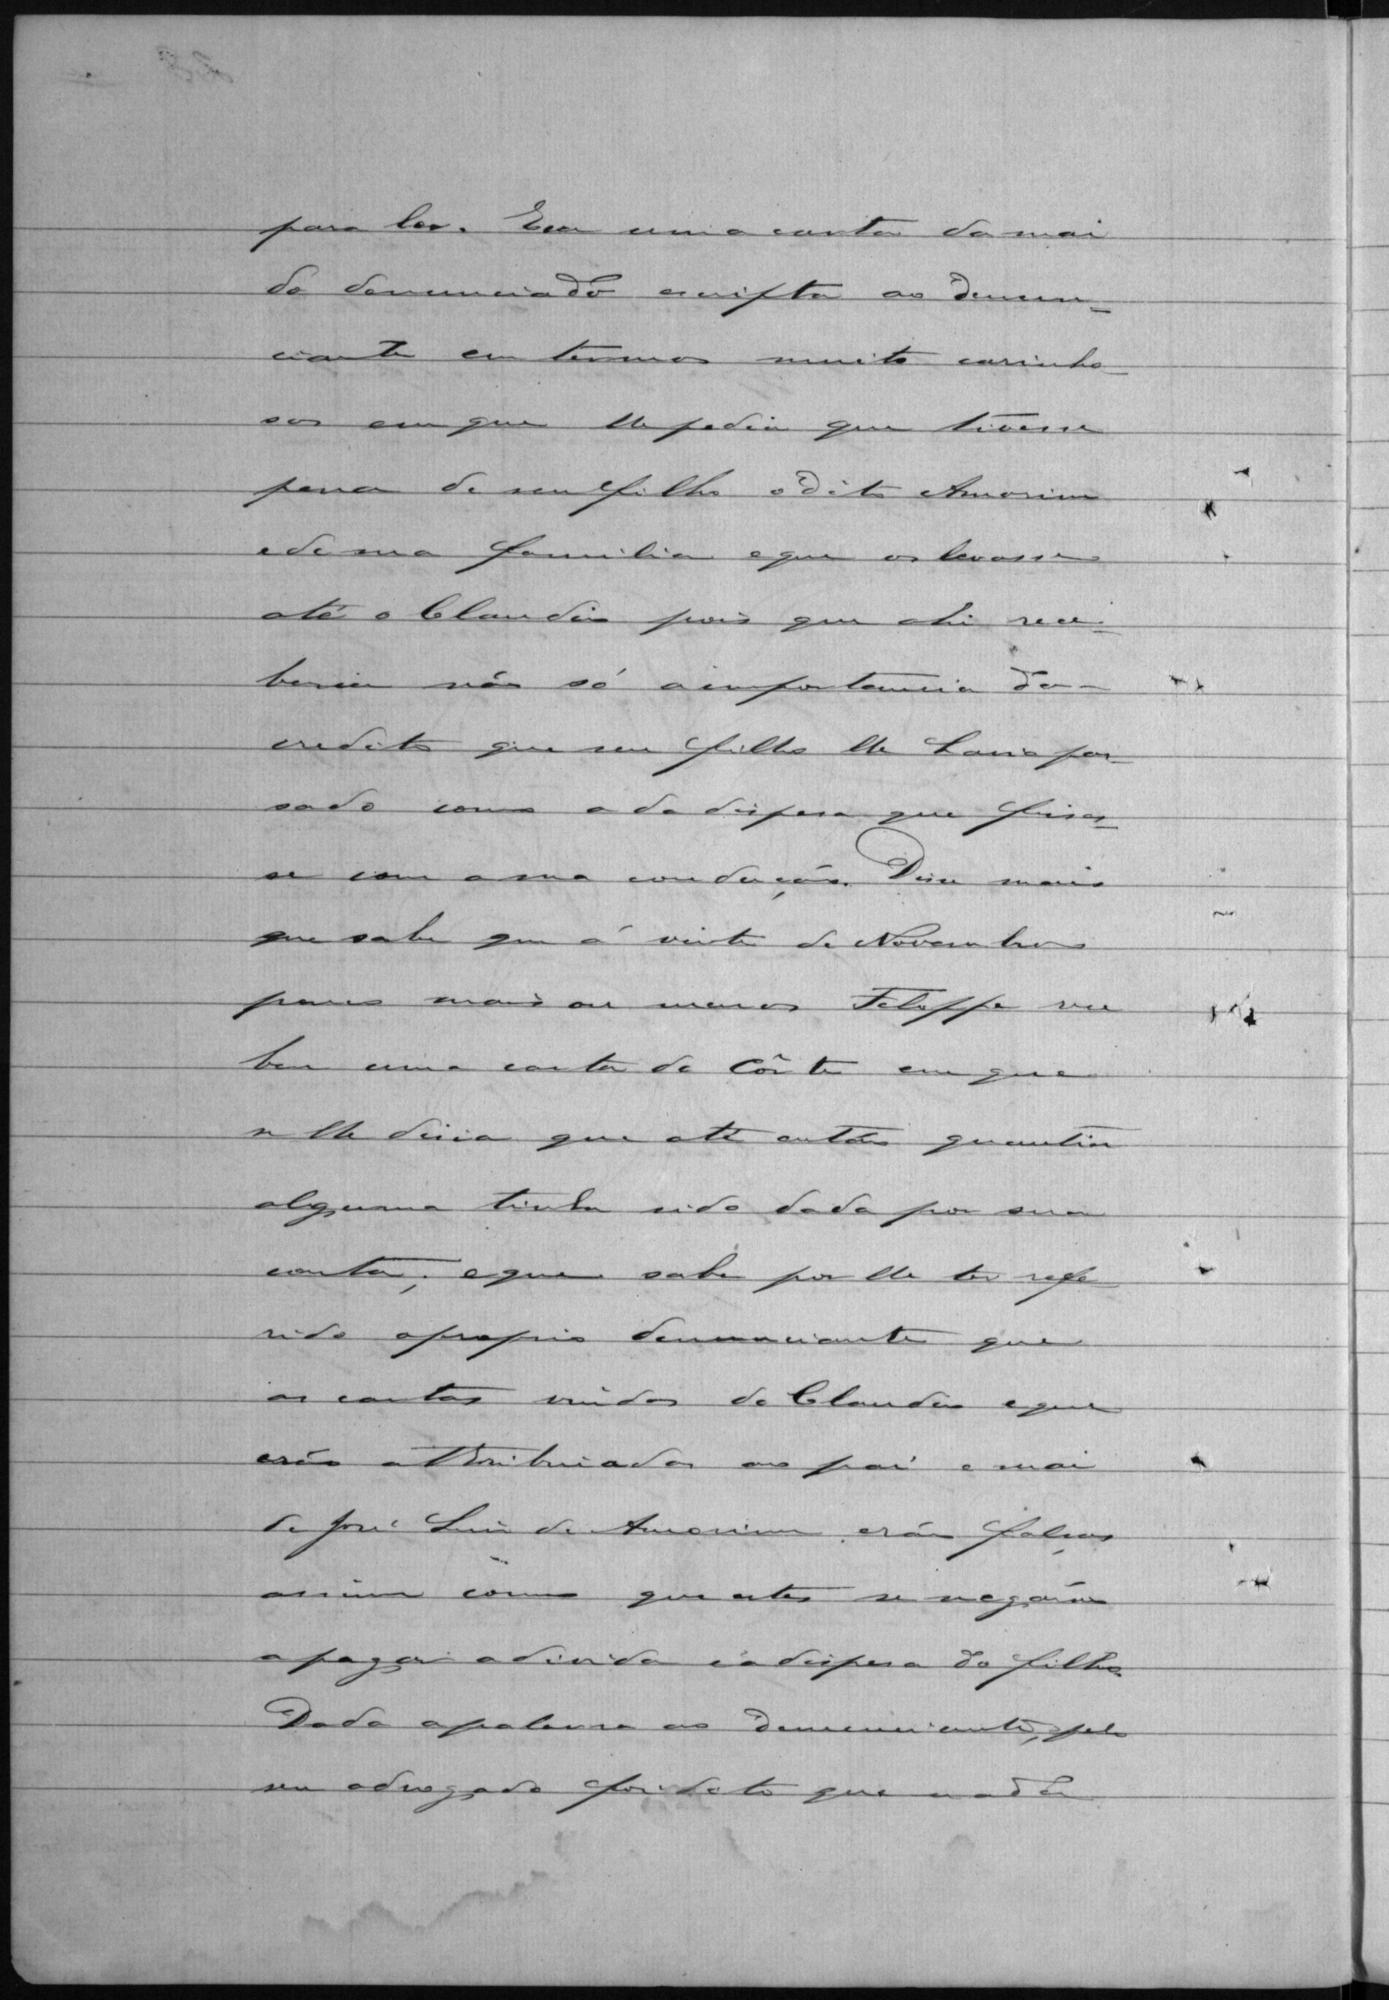 para ler. Era uma carta da mai
do denunciado escripta ao denun-
ciante em termos muito carinho-
sos em que lhe pedia que tivesse
pena de seu filho o dito Amorim
e de sua familia e que os levasse
até o Claudio pois que ahi rece-
beria não só a importancia do
credito que seu filho lhe havia pas-
sado como a da dispesa que fises-
se com a sua conducção. Disse mais
que sabe que á vinte de Novembro
pouco mais ou menos Felippe rece
beu uma carta da Côrte em que
se lhe disia que até então quantia
alguma tinha sido dada por sua
conta; e que sabe por lhe ter refe
rido o proprio denunciante que
as cartas vindas do Claudio e que
erão attribuiadas ao pai e mai
de José Luis de Amorim erão falsas
assim como que estes se negárão
a pagar a divida e a dispesa do filho.
Dada a palavra ao denunciante, pelo
seu advogado foi dito que nada